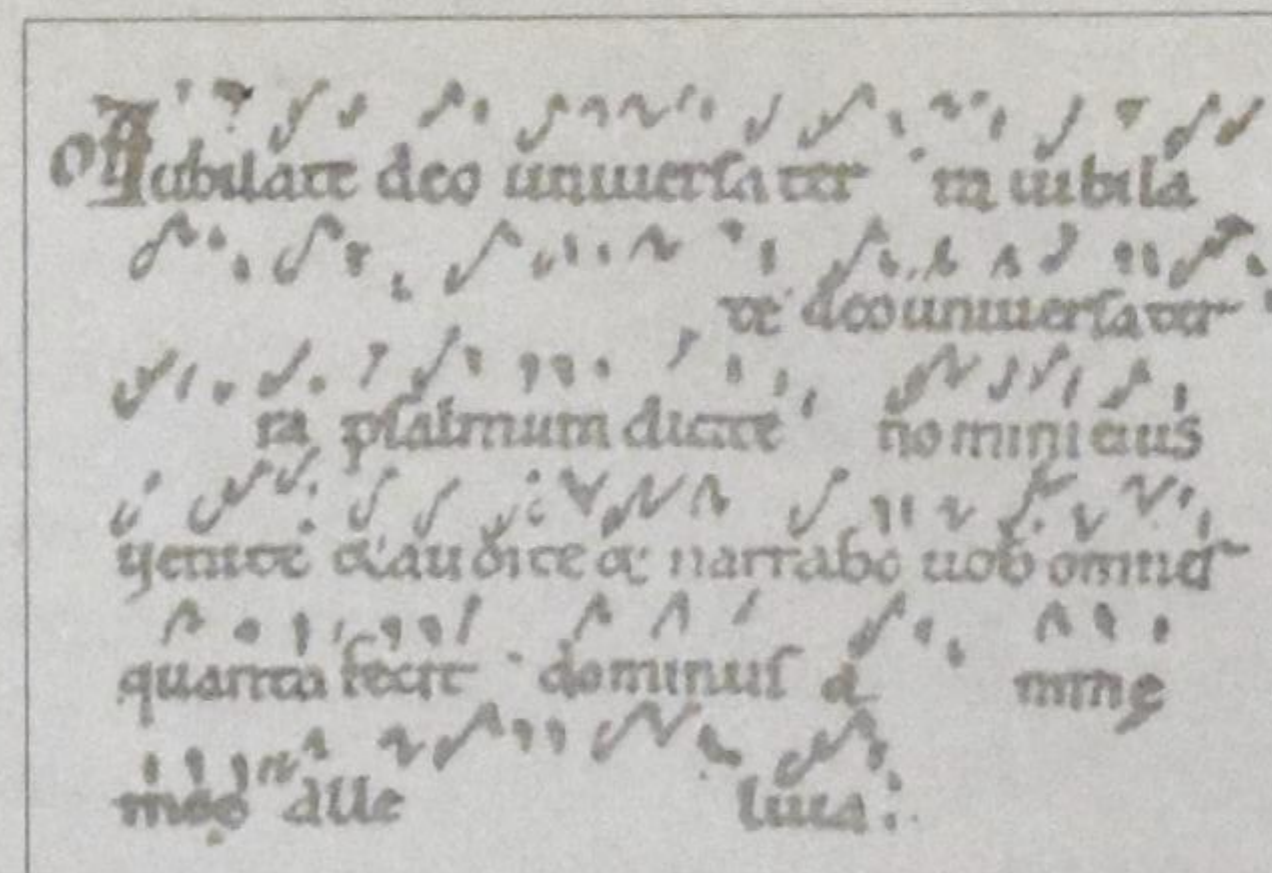 Iubilate deo uniuersa ter in iubila
te deo uniuersa ter
ra psalmum dicite nomini eius
uenite & audite & narrabo uob omnes
quanta fecit dominus a nimę
meę alle luia